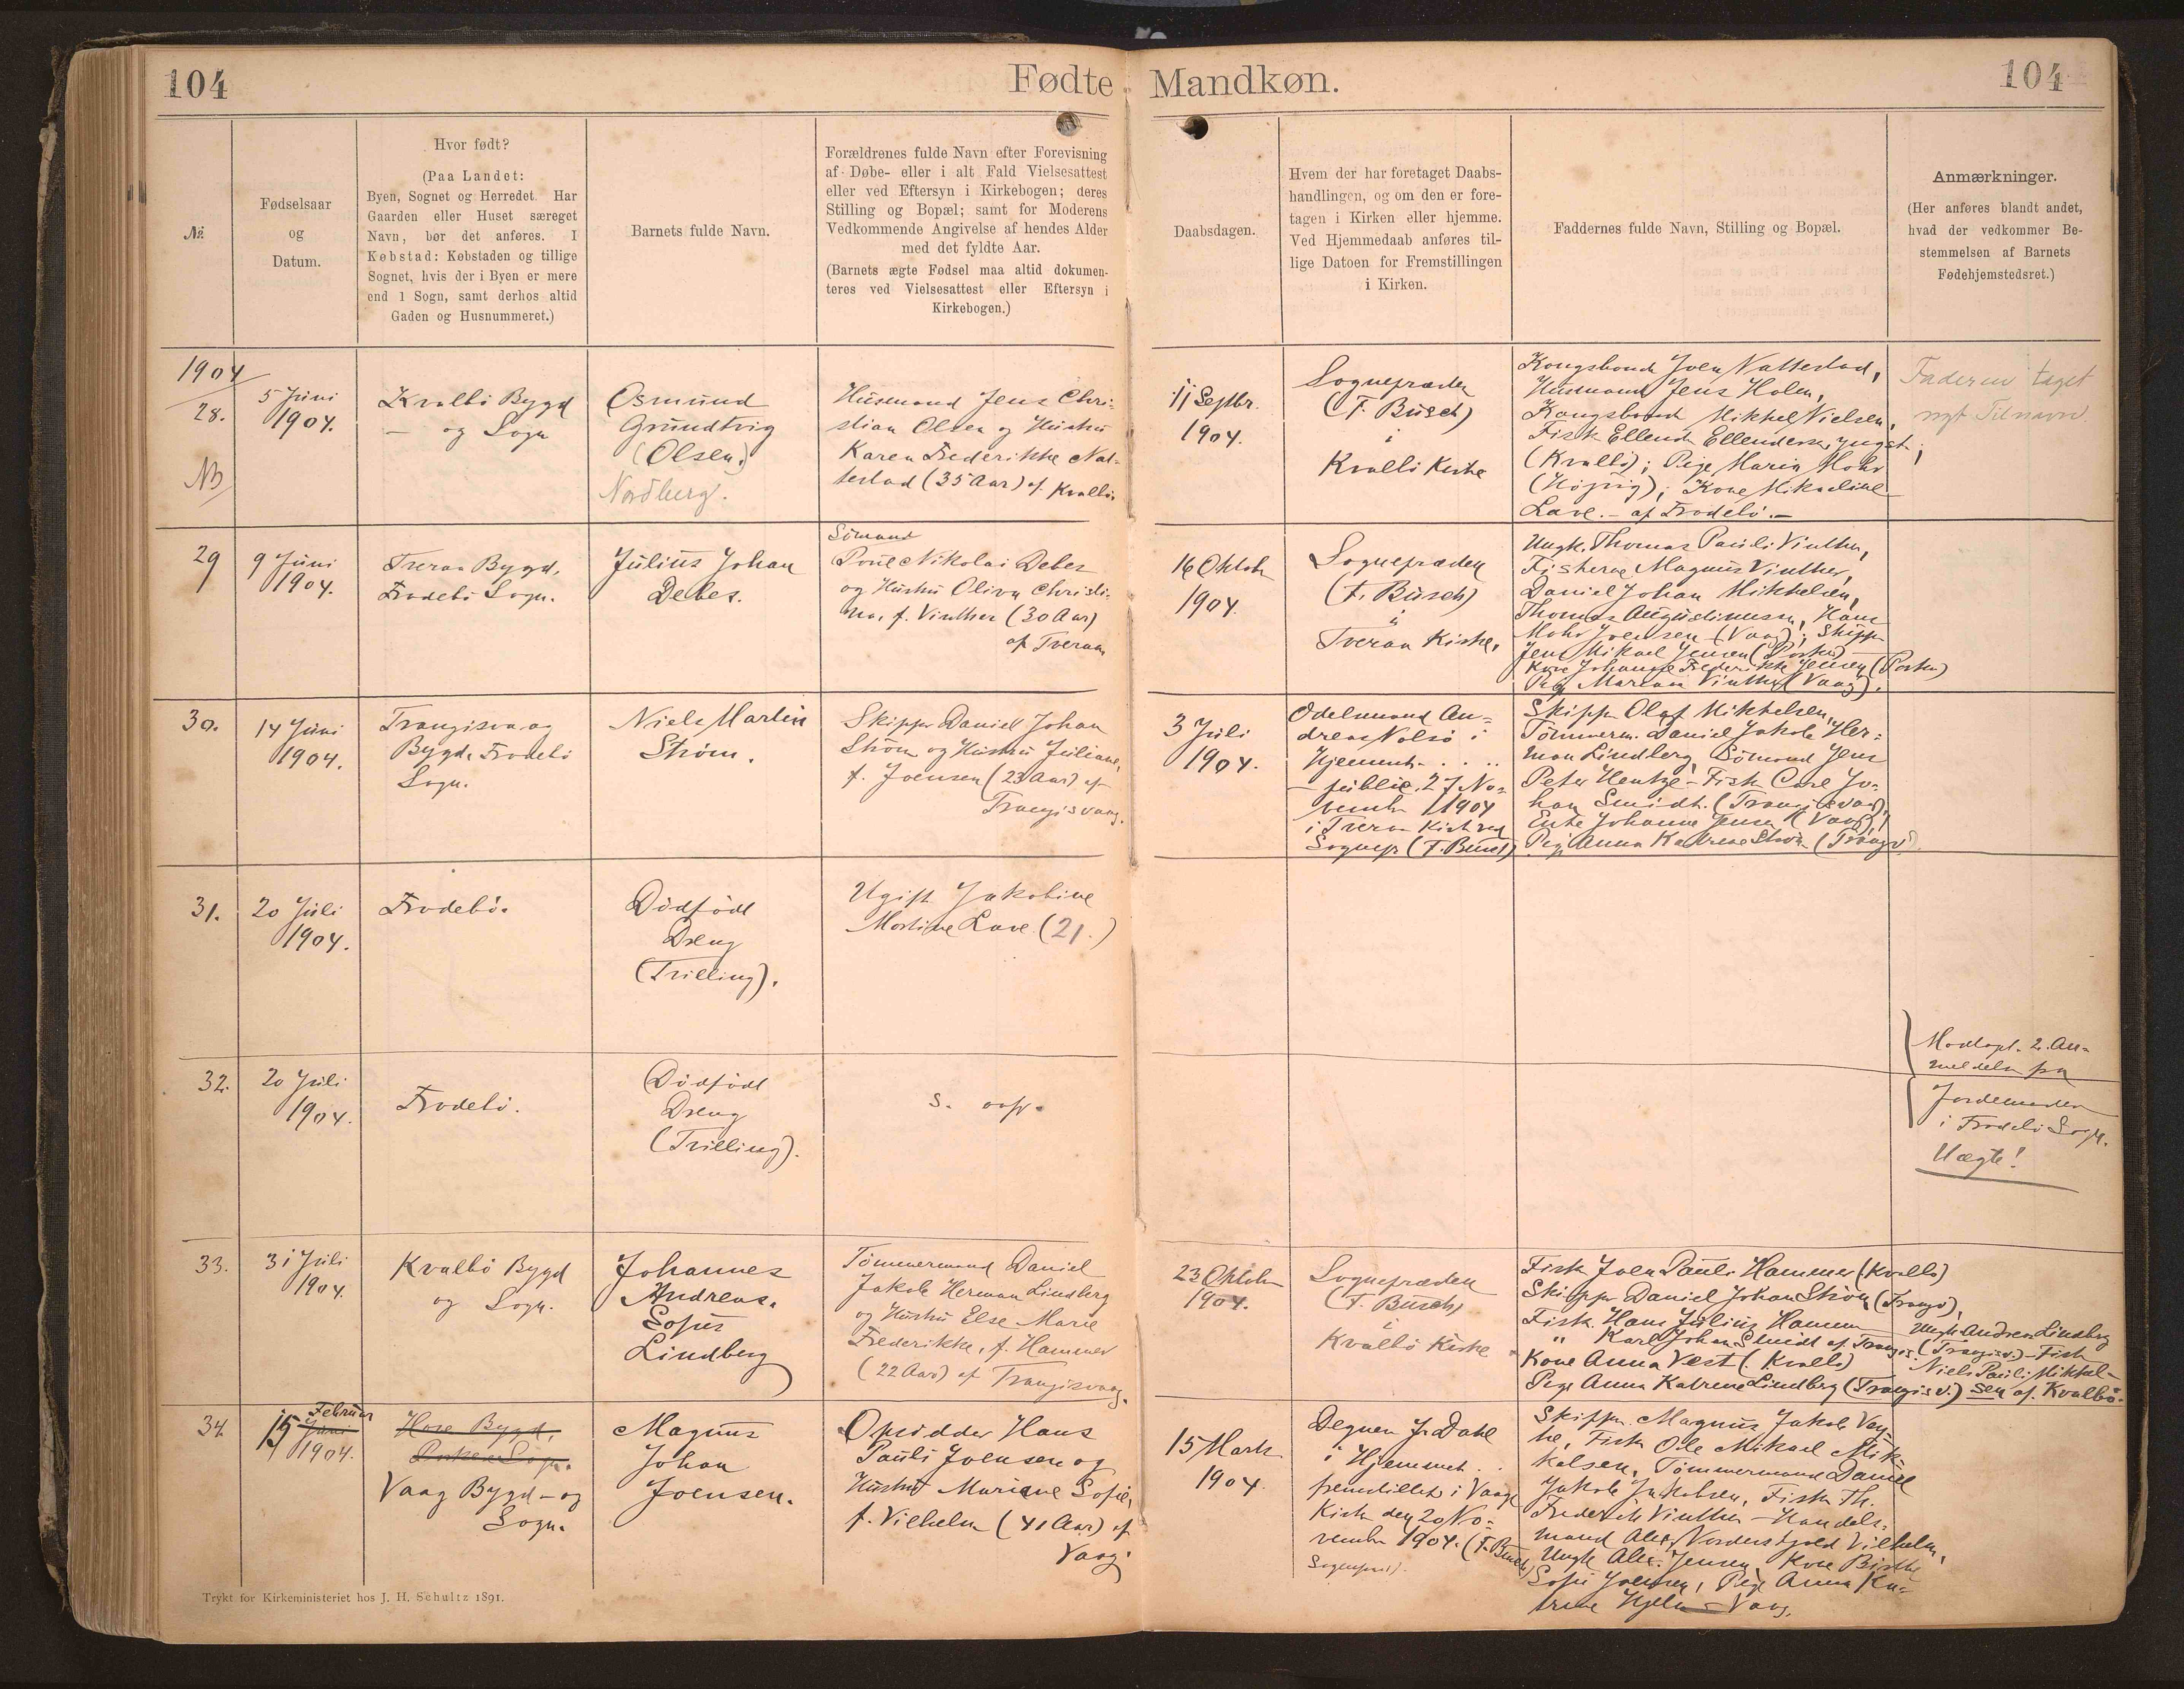 104
Fødte Mandkøn.
104
№
Fødselsaar
og
Datum.
Hvor født?
(Paa Landet:
Byen, Sognet og Herredet. Har
Gaarden eller Huset særeget
Navn, bør det anføres. I
Købstad: Købstaden og tillige
Sognet, hvis der i Byen er mere
end 1 Sogn, samt derhos altid
Gaden og Husnummeret.)
Barnets fulde Navn.
Forældrenes fulde Navn efter Forevisning
af Døbe- eller i alt Fald Vielsesattest
eller ved Eftersyn i Kirkebogen; deres
Stilling og Bopæl; samt for Moderens
Vedkommende Angivelse af hendes Alder
med det fyldte Aar.
(Barnets ægte Fødsel maa altid dokumen-
teres ved Vielsesattest eller Eftersyn i
Kirkebogen.)
Daabsdagen.
Hvem der har foretaget Daabs-
handlingen, og om den er fore-
tagen i Kirken eller hjemme.
Ved Hjemmedaab anføres til-
lige Datoen for Fremstillingen
i Kirken.
Faddernes fulde Navn, Stilling og Bopæl.
Anmærkninger.
(Her anføres blandt andet,
hvad der vedkommer Be-
stemmelsen af Barnets
Fødehjemstedsret.)
1904
28.
NB
5 Juni
1904.
Kvalbö Bygd
— og Sogn
Osmund
Grundtvig
(Olsen.)
Nordberg.
Husmand Jens Chri-
stian Olsen og Hustru
Karen Frederikke Nat-
testad (35 Aar) af Kvalbö.
11 Septbr.
1904.
Sognepræsten
(F. Busch)
i
Kvalbö Kirke
Kongsbonde Joen Nattestad,
Husmand Jens Holm,
Kongsbonde Mikkel Nielsen,
Fisk. Ellend Ellendersen, yngst;
(Kvalbö); Pige Maria Mohr
(Höjvig); Kone Mikaeline
Lave. - af Frodebö. -
Faderen taget
nyt Tilnavn
29
9 Juni
1904.
Tveraa Bygd,
Frodebö Sogn.
Julius Johan
Debes.
Sömand
Poul Nikolai Debes
og Hustru Oliva Christi-
na, f. Vinther (30 Aar)
af Tveraa
16 Oktob
1904.
Sognepræsten
(F. Busch)
i
Tveraa Kirke.
Ungk. Thomas Pauli Vinther,
Fiskerne Magnus Vinther,
Daniel Johan Mikkelsen,
Thomas Augustinussen, Hans
Mohr Joensen (Vaag); Skipper
Jens Mikael Jensen (Porkeri)
Kone Johanne Frederikke Jensen (Porkeri)
Pige Mariane Vinther (Vaag).
30.
14 Juni
1904.
Trangisvaag
Bygd, Frodebö
Sogn.
Niels Martin
Ström.
Skipper Daniel Johan
Ström og Hustru Juliane,
f. Joensen (23 Aar) af
Trangisvaag.
3 Juli
1904.
Odelsmand An-
dreas Nolsö i
Hjemmet. . . .
— public. 27 No-
vember 1904
i Tveraa Kirke ved
Sognepr (F. Busch)
Skipper Olaf Mikkelsen,
Tömmerm. Daniel Jakob Her-
man Lindberg, Sömand Jens
Peter Hentze - Fisk Carl Jo-
han Smidt. (Trangisvaag),
Enke Johanne Jensen (Vaag),
Pige Anna Katrine Ström (Trangsv)
31.
20 Juli
1904.
Frodebö.
Dödfödt
Dreng
(Trilling).
Ugift Jakobine
Mortine Lave (21.)
32.
20 Juli
1904.
Frodebö.
Dödfödt
Dreng
(Trilling).
s. ovf.
Modtaget 2. An-
meldelse fra
Jordemoder
i Frodebö Sogn.
Uægte!
33.
31 Juli
1904.
Kvalbö Bygd
og Sogn.
Johannes
Andreas
Sofus
Lindberg
Tömmermand Daniel
Jakob Herman Lindberg
og Hustru Else Marie
Frederikke, f. Hammer
(22 Aar) af Trangisvaag.
23 Oktob
1904.
Sognepræsten
(F. Busch)
i
Kvalbö Kirke
Fisk Joen Pauli Hammer (Kvalbö)
Skipper Daniel Johan Ström (Trangs),
Fisk. Hans Julius Hammer
" Karl Johan Smidt af Trangis.
Kone Anna Vest (Kvalbö)
Pige Anna Katrine Lindberg (Trangisv.)
Ungk Andreas Lindberg
(Trangisv.) - Fisk
Niels Pauli Mikkel-
sen af Kvalbö.
34
15 Juni Februar
1904.
Hove Bygd,
Porkeri Sogn.
Vaag Bygd - og
Sogn.
Magnus
Johan
Joensen.
Opsidder Hans
Pauli Joensen og
Hustru Mariane Sofie,
f. Vilhelm (41 Aar) af
Vaag.
15 Marts
1904.
Degnen J. Dahl
i Hjemmet . .
fremstillet i Vaags
Kirke den 20 No-
vember 1904. (F. Busch)
Sognepræst).
Skipper Magnus Jakob Vay-
he, Fisk Ole Mikael Mik-
kelsen, Tömmermand Daniel
Jakob Jakobsen, Fisk Th.
Frederik Vinther - Handels-
mand Alex. Nordenskjold Vilhelm,
Ungk Alex. Jensen, Kone Birthe
Sofie Joensen, Pige Anna Ka-
trine Hjelm - Vaag.
Trykt for Kirkeministeriet hos J. H. Schultz 1891.